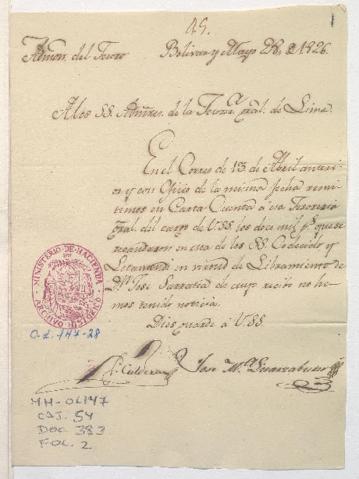 49.
1
Admon. del Tesoro Bolivar y Mayo 28. de 1826.
A los SS. Admres. de la Tesoa. gral. de Lima.
En el Correo de 13. de Abril anterior
y con oficio de la misma fecha remi
timos en Carta Cuenta á esa Tesoreria
gral. del cargo de USS. los diez mil ps. que se
en esta de los SS. Codecido y
en virtud de Libramiento de
Dn. José Sarratea de cuyo recibo no he
mos tenido noticia.
Dios guarde á USS.
Calderon José Ma.
MINISTERIO DE HACIENDA
ARCHIVO HISTORICO
O.L. 147-28
MH-OL147
CAJ. 54
DOC. 383
FOL. 2